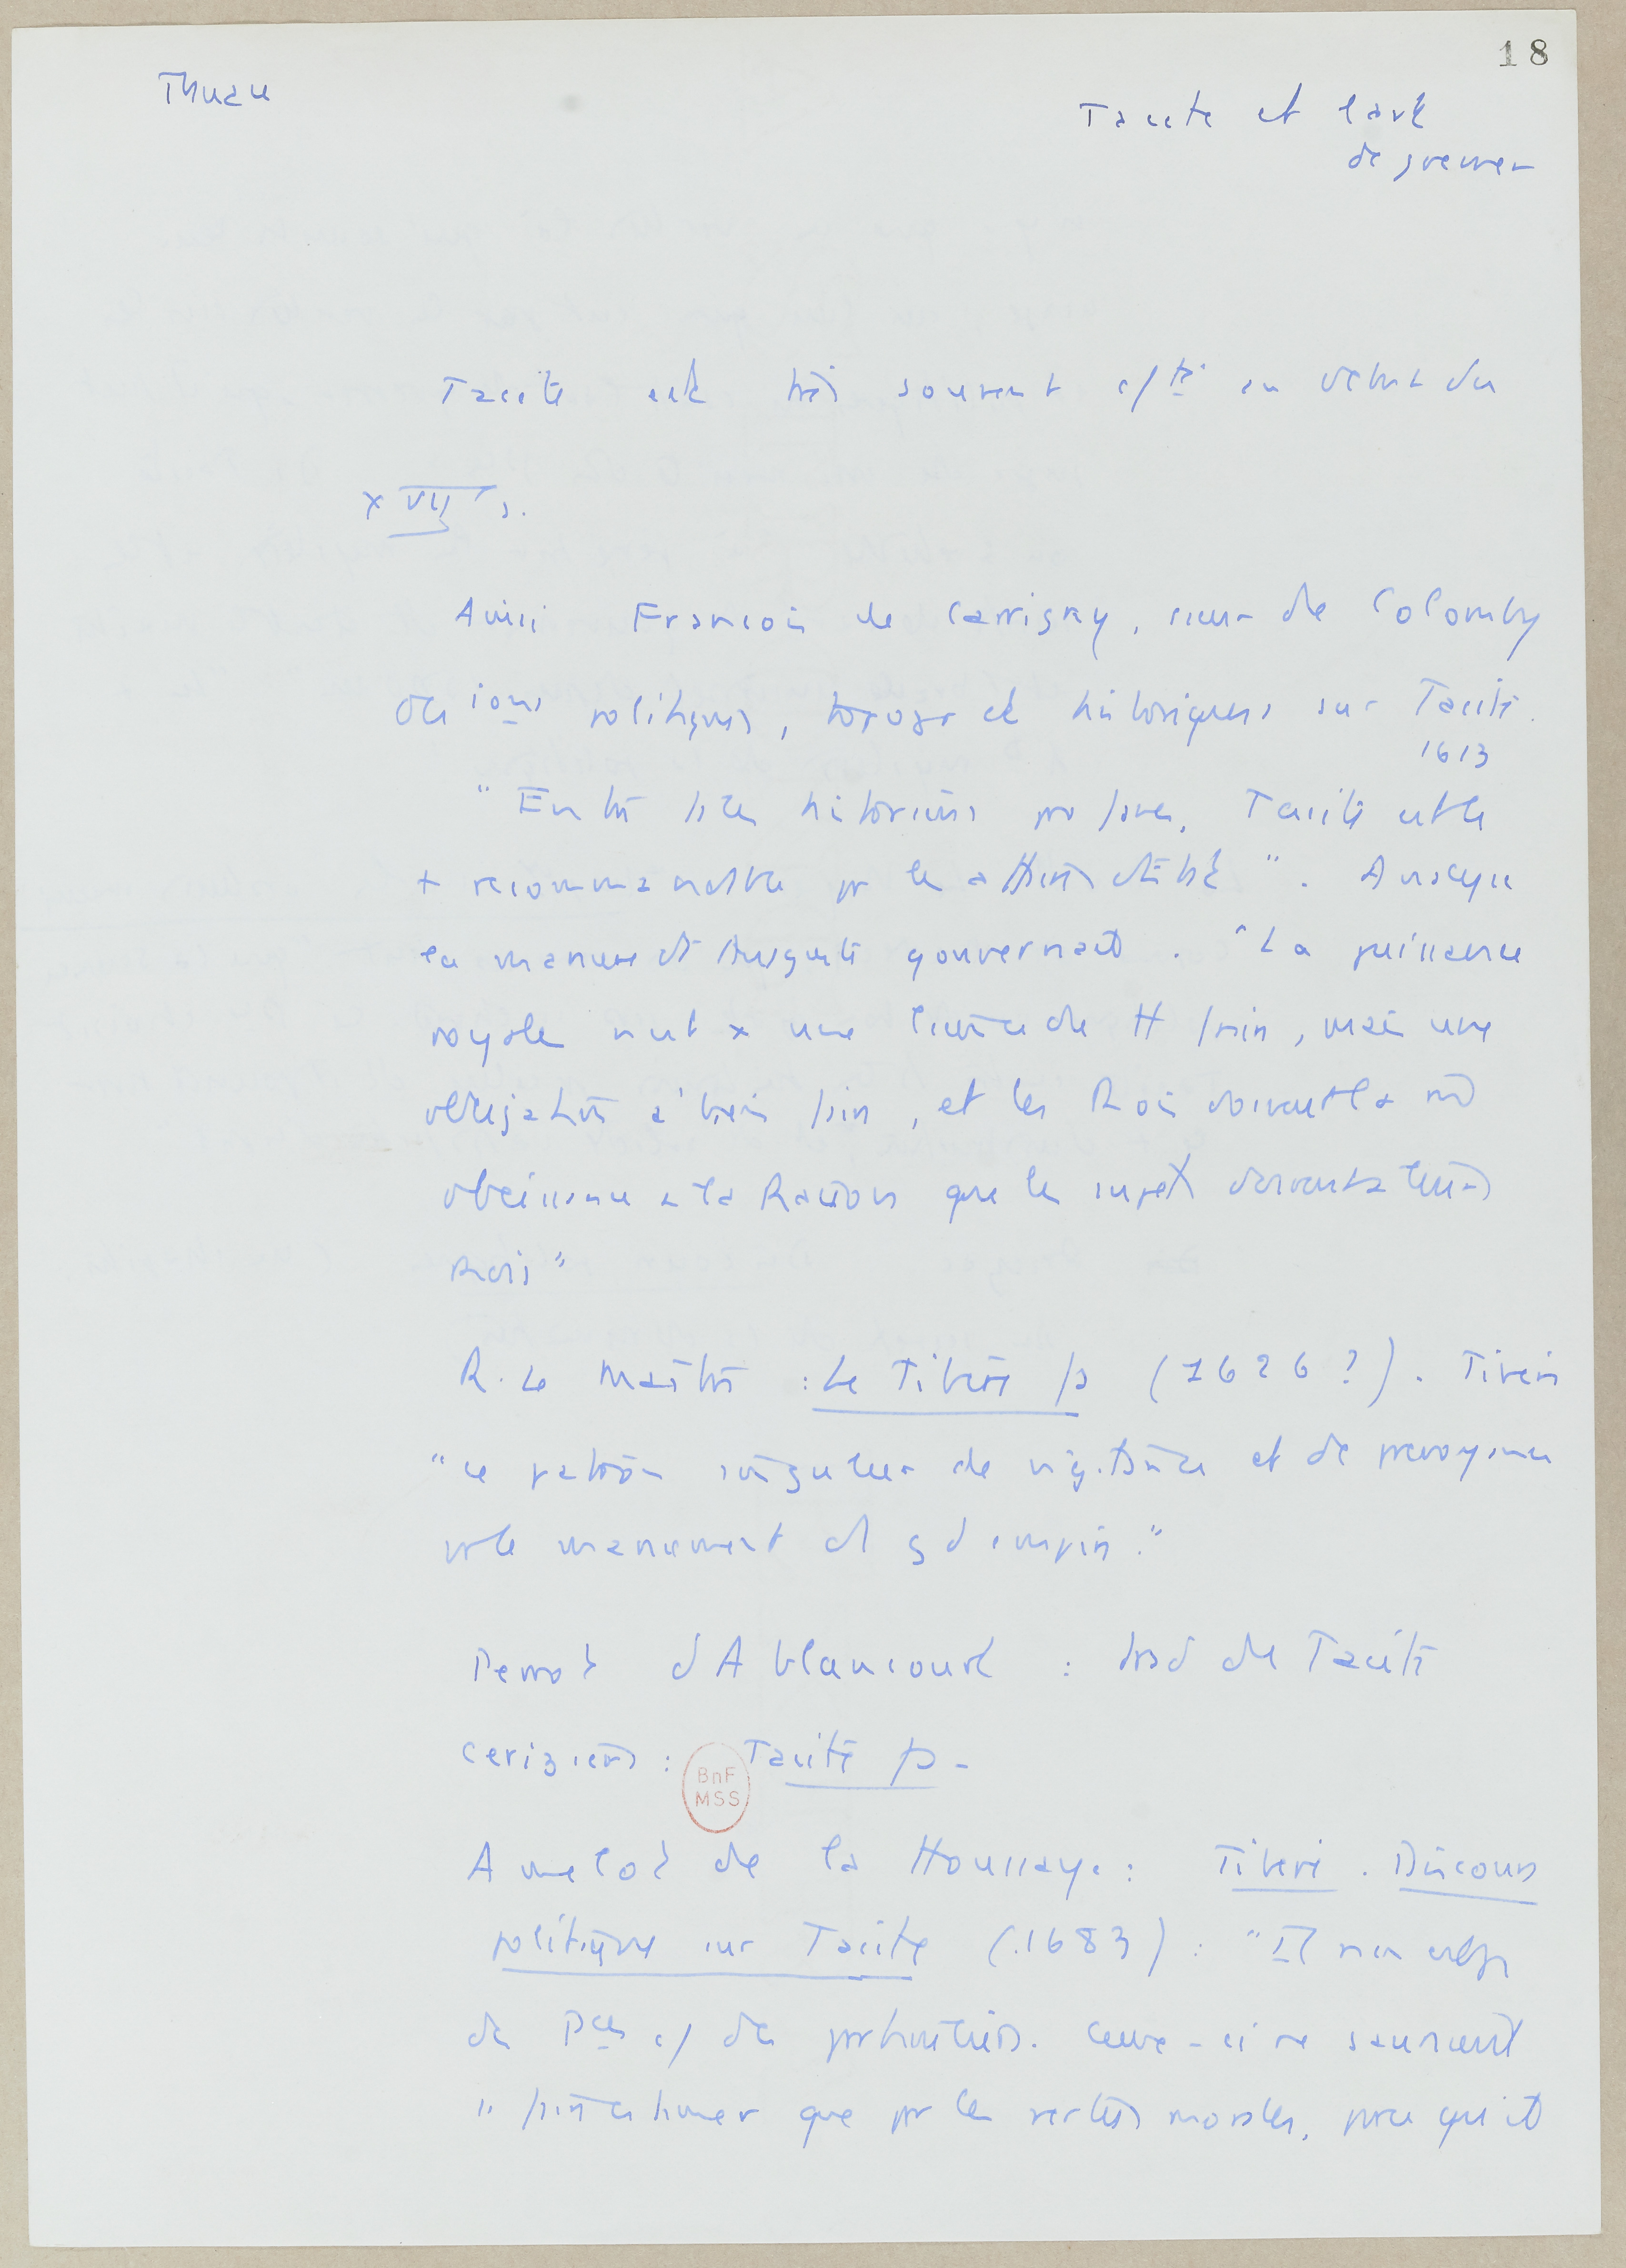 18
Thuau
Tacite et l'art
de gouverner
Tacite est très souvent c/té au début du
XVII s.
Ainsi François de Cauvigny, sieur de Colomby
Obsions politiques, topogr et historiques sur Tacite.
1613
"Entre les historiens profanes, Tacite est le
+ recommandable pr les affaires d'Etat". Analyse
la manière dt Auguste gouvernait. "La puissance
royale n'est x une licence de tt faire, mais une
obligation à bien faire, et les Rois doivent la m
obéissance à la Raison que les sujets doivent à leurs
Rois"
R. Le Maître : Le Tibère fs (1626 ?). Tibère
"ce patron singulier de vigilance et de prévoyance
ds le maniement d'1 gd empire."
Perrot d'Ablancourt : trad de Tacite
Ceriziers : Tacite fs -
BnF
MSS
Amelot de la Houssaye : Tibère. Discours
politiques sur Tacite (1683) : "Il n'en est pas
des Pces c/ des particuliers. Ceux-ci ne sauraient
" faire estimer que pr les vertus morales, parce qu'ils